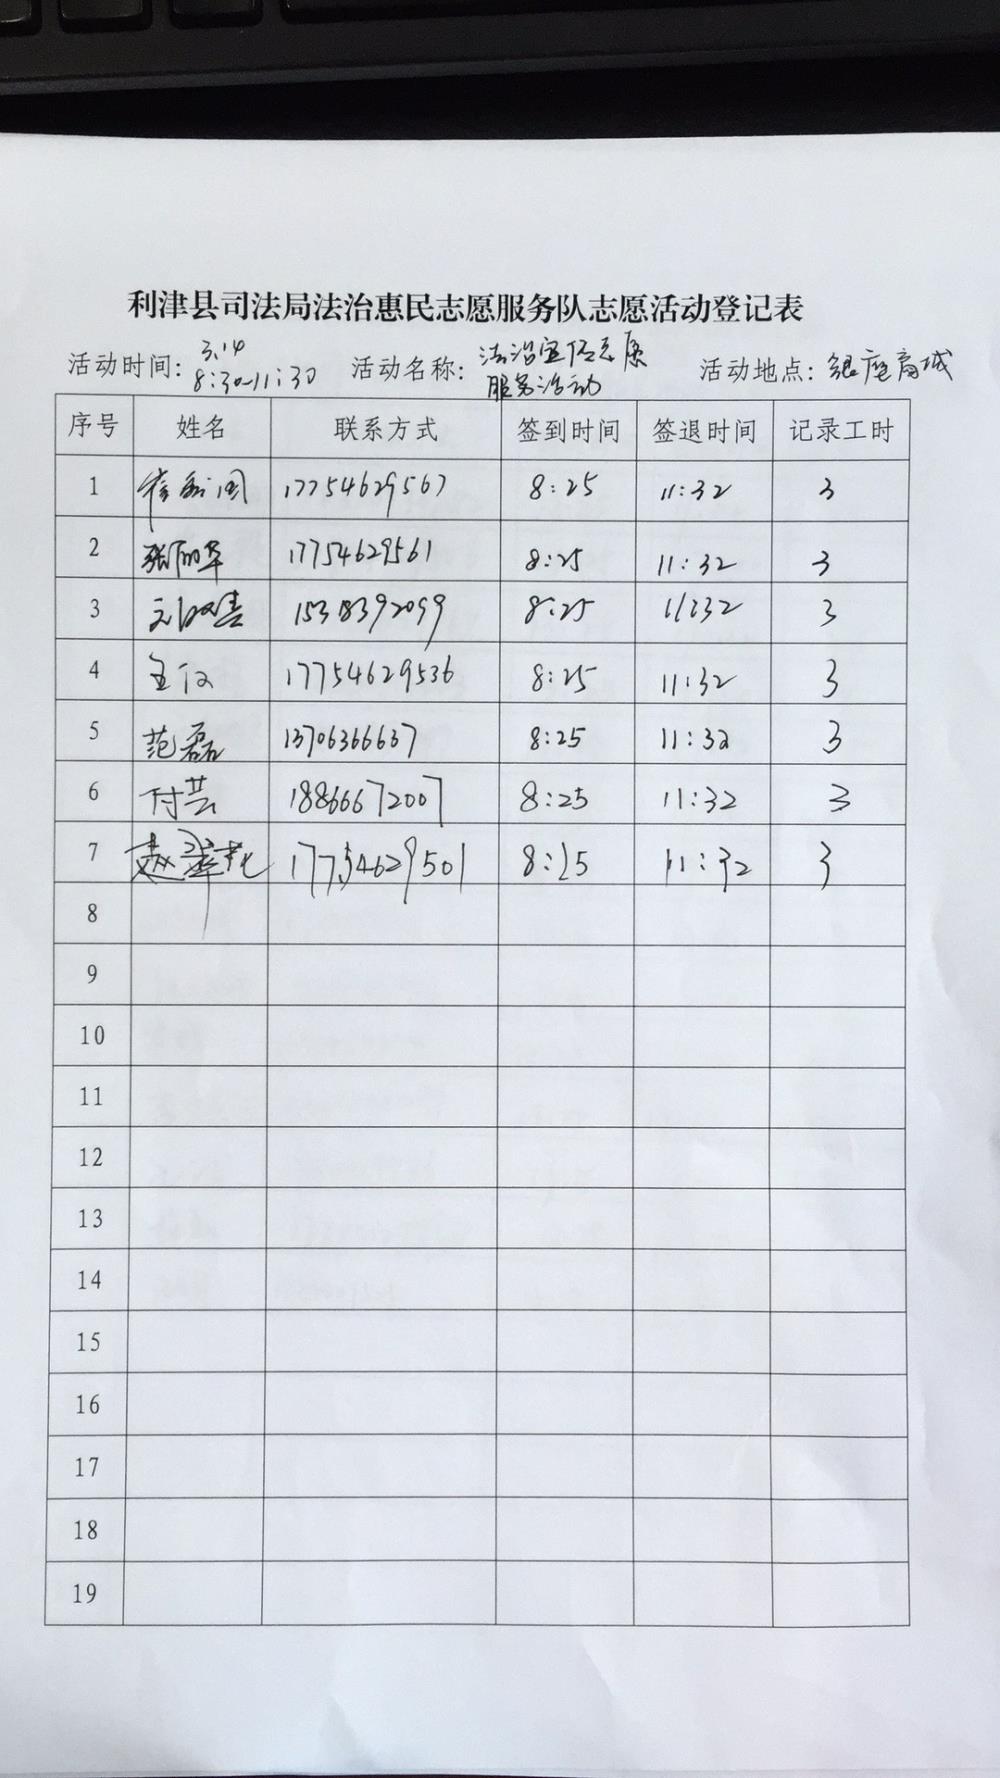 利津县司法局法治惠民志愿服务队志愿活动登记表
活动时间：3.14 8:30-11:30 活动名称：法治宣传志愿服务活动 活动地点：银座商城
序号 姓名 联系方式 签到时间 签退时间 记录工时
1 17754629567 8:25 11:32 3
2 张丽华 17754629561 8:25 11:32 3
3 15318392099 8:25 11:32 3
4 17754629536 8:25 11:32 3
5 范磊 13706366637 8:25 11:32 3
6 付芸 18866672007 8:25 11:32 3
7 赵翠花 17754629501 8:25 11:32 3
8
9
10
11
12
13
14
15
16
17
18
19